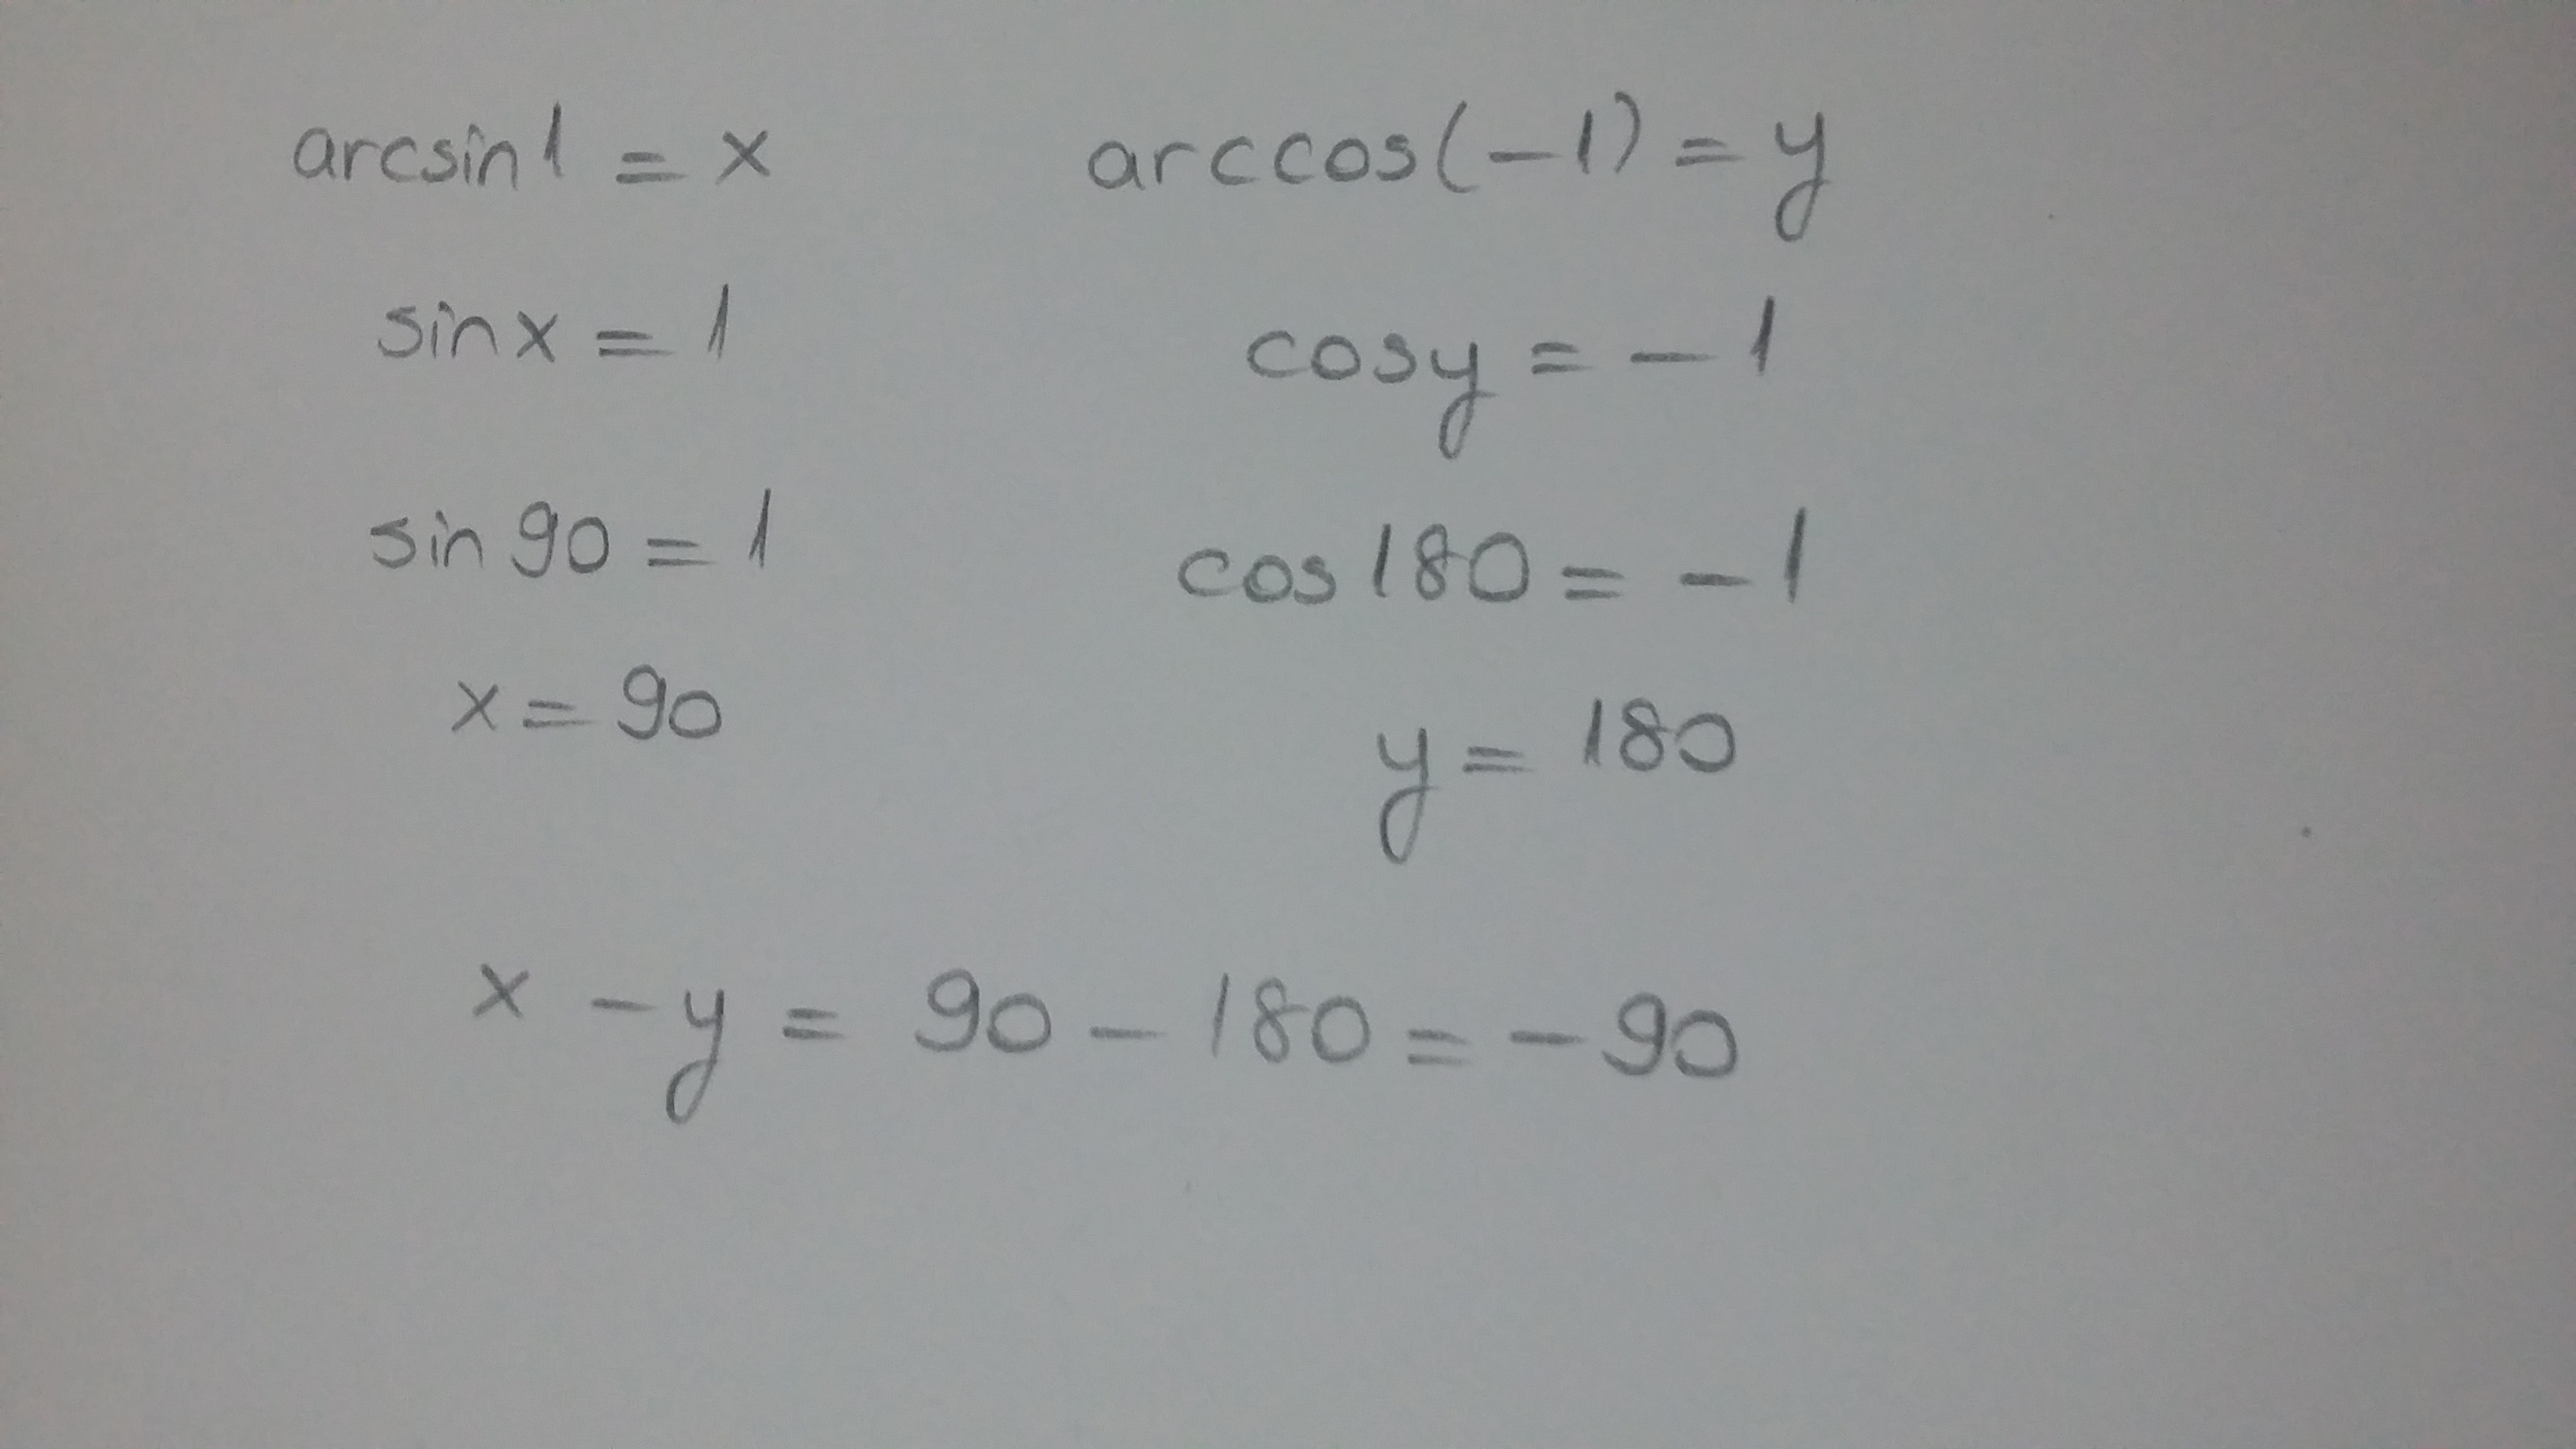 arcsin1 = x
arccos(-1) = y
sinx = 1
cosy = -1
sin90 = 1
cos180 = -1
x = 90
y = 180
x - y = 90 - 180 = -90